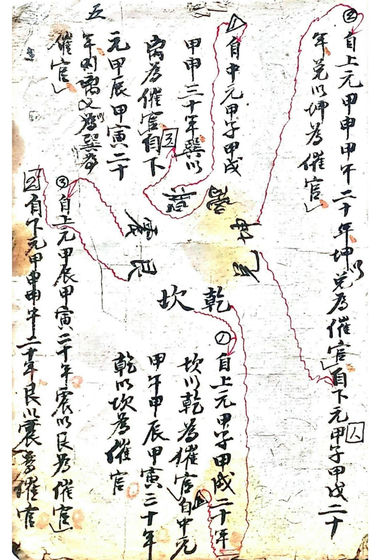 ②自上元甲申甲午二十年坤以兑為催官自下元甲子甲戌二十
年兑以坤為催官
自中元甲子甲戌
甲申三十年巽以
離為催官自下
元甲辰甲寅二十
年
催官
五
乾
坎
艮
震
①自上元甲子甲戌二十年
坎以乾為催官自中元
甲午甲辰甲寅三十年
乾以坎為催官
③自上元甲辰甲寅二十年震以艮為催官
自下元甲申甲午二十年艮以震為催官